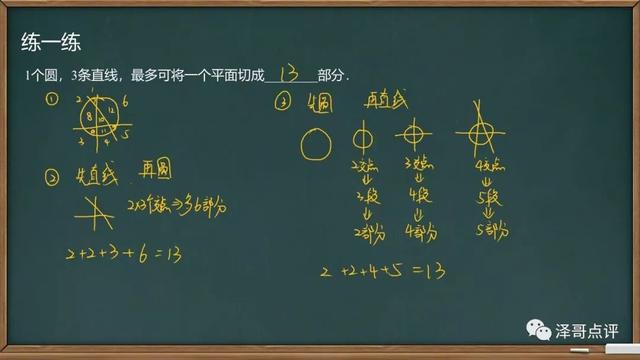 练一练
1个圆，3条直线，最多可将一个平面切成 13 部分．
①
1
2
6
8
12
10
3
4
5
② 先直线 再圆
2×3个交点⇒多6部分
2+2+3+6=13
③ 先圆 再直线
2交点 3交点 4交点
↓ ↓ ↓
3段 4段 5段
↓ ↓ ↓
2部分 4部分 5部分
2+2+4+5=13
泽哥点评